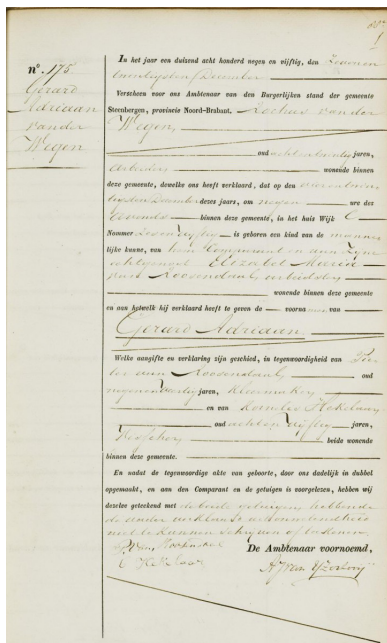 nº. 175.
Gerard
Adriaan
vander
Wegen
In het jaar een duizend acht honderd negen en vijftig, den Zevenen
twintigsten December
Verscheen voor ons Ambtenaar van den Burgerlijken stand der gemeente
Steenbergen, provincie Noord-Brabant, vander
Wegen,
oud achtentwintig jaren,
wonende binnen
deze gemeente, dewelke ons heeft verklaard, dat op den
December dezes jaars, om negen ure des
binnen deze gemeente, in het huis Wijk C
Nommer is geboren een kind van de manne-
lijke kunne, van hem Comparant en aan Zyne
echtgenoot Elizabet Maria
Roosendaal, arbeidster
wonende binnen deze gemeente
en aan hetwelk hij verklaard heeft te geven de voorna men van
Gerard Adriaan.
Welke aangifte en verklaring zijn geschied, in tegenwoordigheid van Pie-
ter van Roosendaal, oud
jaren, Kleermaker,
en van Kornelis Hekelaar,
oud achten vijftig jaren,
beide wonende
binnen deze gemeente.
En nadat de tegenwoordige akte van geboorte, door ons dadelijk in dubbel
opgemaakt, en aan den Comparant en de getuigen is voorgelezen, hebben wij
dezelve geteekend met de beide getuigen, hebbende
de ander verklaard
niet te kunnen schrijven of teekenen.
De Ambtenaar voornoemd,
C Hekelaar